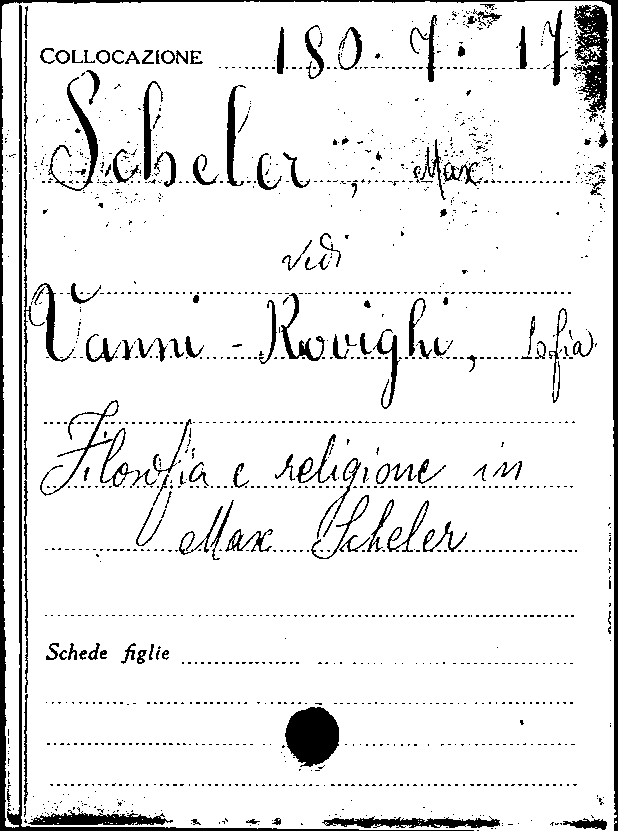 COLLOCAZIONE 180. 7. 17
Scheler, Max
vedi
Vanni-Rovighi, Sofia
Filosofia e religione in
Max Scheler
Schede figlie